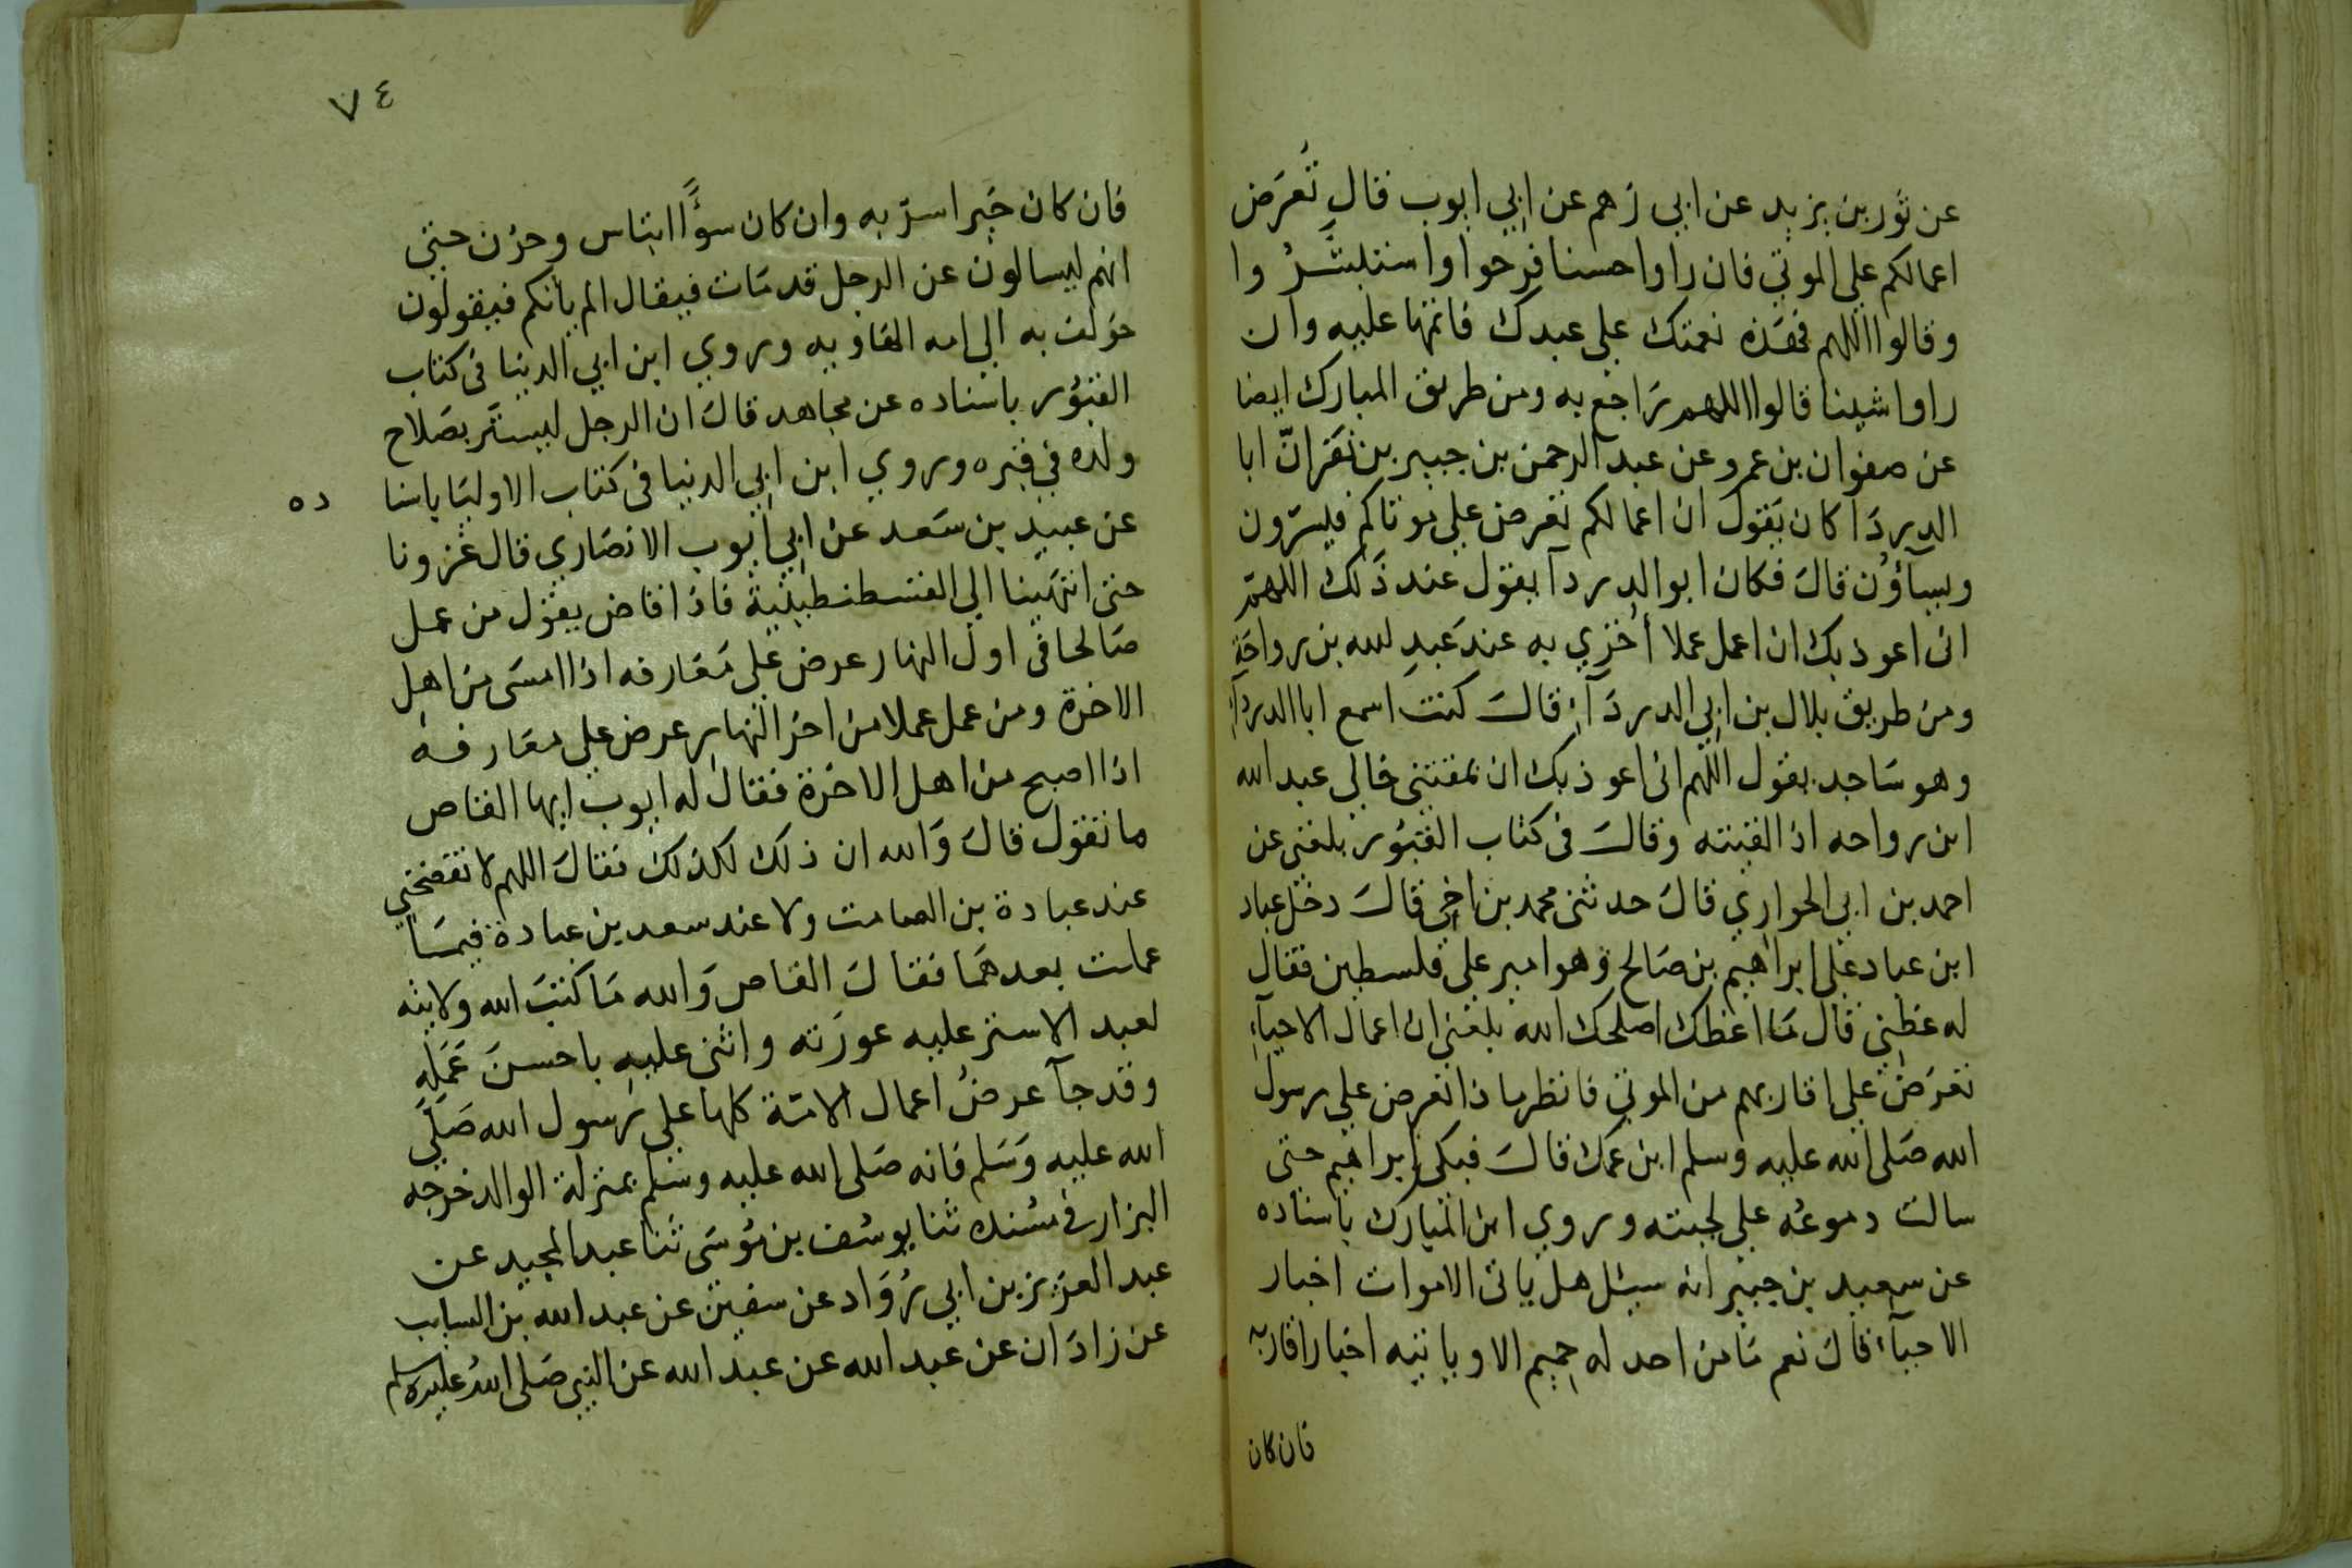 عن ثور بن يزيد عن ابي رهم عن ابي ايوب قال تُعرَض
اعمالكم علي الموتي فان راوا حسنا فرحوا واستبشرُوا
وقالوا اللهم فهذه نعمتك علي عبدك فاتمها عليه وان
راوا شينا قالوا اللهم رَاجع به ومن طريق المبارك ايضا
عن صفوان بن عمرو عن عبد الرحمن بن جبير بن نفر انّ ابا
الدردَآ كان يَقول ان اعمالكم تعرض علي موتاكم فيسرّون
ويسآؤُن قالَ فكان ابو الدردآ يقول عند ذَلك اللهمّ
انى اعوذ بك ان اعمل عملا أُخزي به عندَ عَبدِ لله بن رواحَة
ومن طريق بلال بن ابي الدردَآءِ قالَ كنت اسمع ابا الدردآءِ
وهو سَاجد يقول اللّهم انى اعوذ بك ان يمقتنى خالي عبد الله
ابن رواحه اذا لقيته وقالَ فى كتاب القبُور بلغنى عن
احمد بن ابي الحواري قالَ حدثنى محمد بن اخي قالَ دخل عباد
ابن عباد علي ابراهيم بن صَالح وهو امير على فلسطين فقال
له عظني قال مَا اعظك اصلحك الله بلغني ان اعمال الاحيآءِ
تعرَض علي اقاربهم من الموتي فانظر ماذا تعرض علي رسول
الله صَلى الله عليه وسلم ابن عمك قالَ فبكى ابراهيم حتى
سالت دموعُه علي لحيته وروي ابن المبارك باسناده
عن سعيد بن جبير انه سئل هل ياتى الاموات اخبار
الاحيآء قالَ نعم مَا من احد له حميم الا وياتيه اخبار اقاربه
فان كان
٧٤
فان كان خَيرا سرّ به وان كان سوًّا ابتاس وحزن حتى
انهم ليسالون عن الرجل قد مَات فيقال الم ياتكم فيقولون
خولف به الي امه الهَاويه وروي ابن ابي الدنيا فى كتاب
القبُور باسناده عن مجاهد قالَ ان الرجل ليسرّ بصَلاح
ولده في قبره وروي ابن ابي الدنيا فى كتاب الاوليَا باسنا
ده
عن عبيد بن سَعد عن ابي ايوب الانصَاري قال غزونا
حتى انتهَينا الي القسطنطينية فاذا قاض يقول من عمل
صَالحا فى اول النهار عرض علي مَعَارفه اذا امسَى من اهل
الاخرة ومن عمل عملا من اخر النهار عرض علي معَارفه
اذا اصبح من اهل الاخرة فقال له ايوب ايها القاص
ما تقول قالَ وَالله ان ذلك لكذلك فقالَ اللهم لا تفضحني
عند عبادة بن الصامت ولا عند سعد بن عبادة فيمَا
عملت بعدهمَا فقالَ القاص وَالله مَا كتبَ الله ولايته
لعبد الا ستر عليه عورَته واثنى عليه باحسنَ عَمَلِهِ
وقد جآ عرضُ اعمال الامّة كلها علي رَسول الله صَلَّي
الله عليه وَسَلم فانه صَلى الله عليه وسلم بمنزلة الوالد خرجه
البزار في مسُنده ثنا يوسُف بن مُوسَى ثَنا عبد المجيد عن
عبد العزيز بن ابي رُوَاد عن سفين عن عبد الله بن السايب
عن زادَان عن عبد الله عن عبد الله عن النبي صَلى الله عليه وسلم